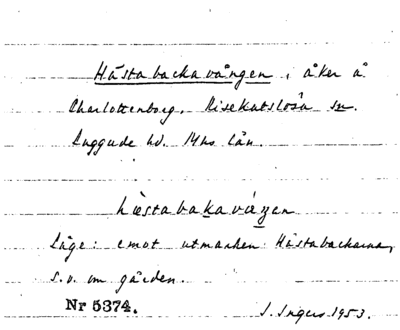 Hästabackavången, åker å
Charlottenborg, Risekatslösa sn.
Luggude hd. Mhs län.
hæstabakavåŋen
Läge: emot utmarken Hästabackarna,
s.v. om gården.
Nr 5374.
I. Ingers 1953.